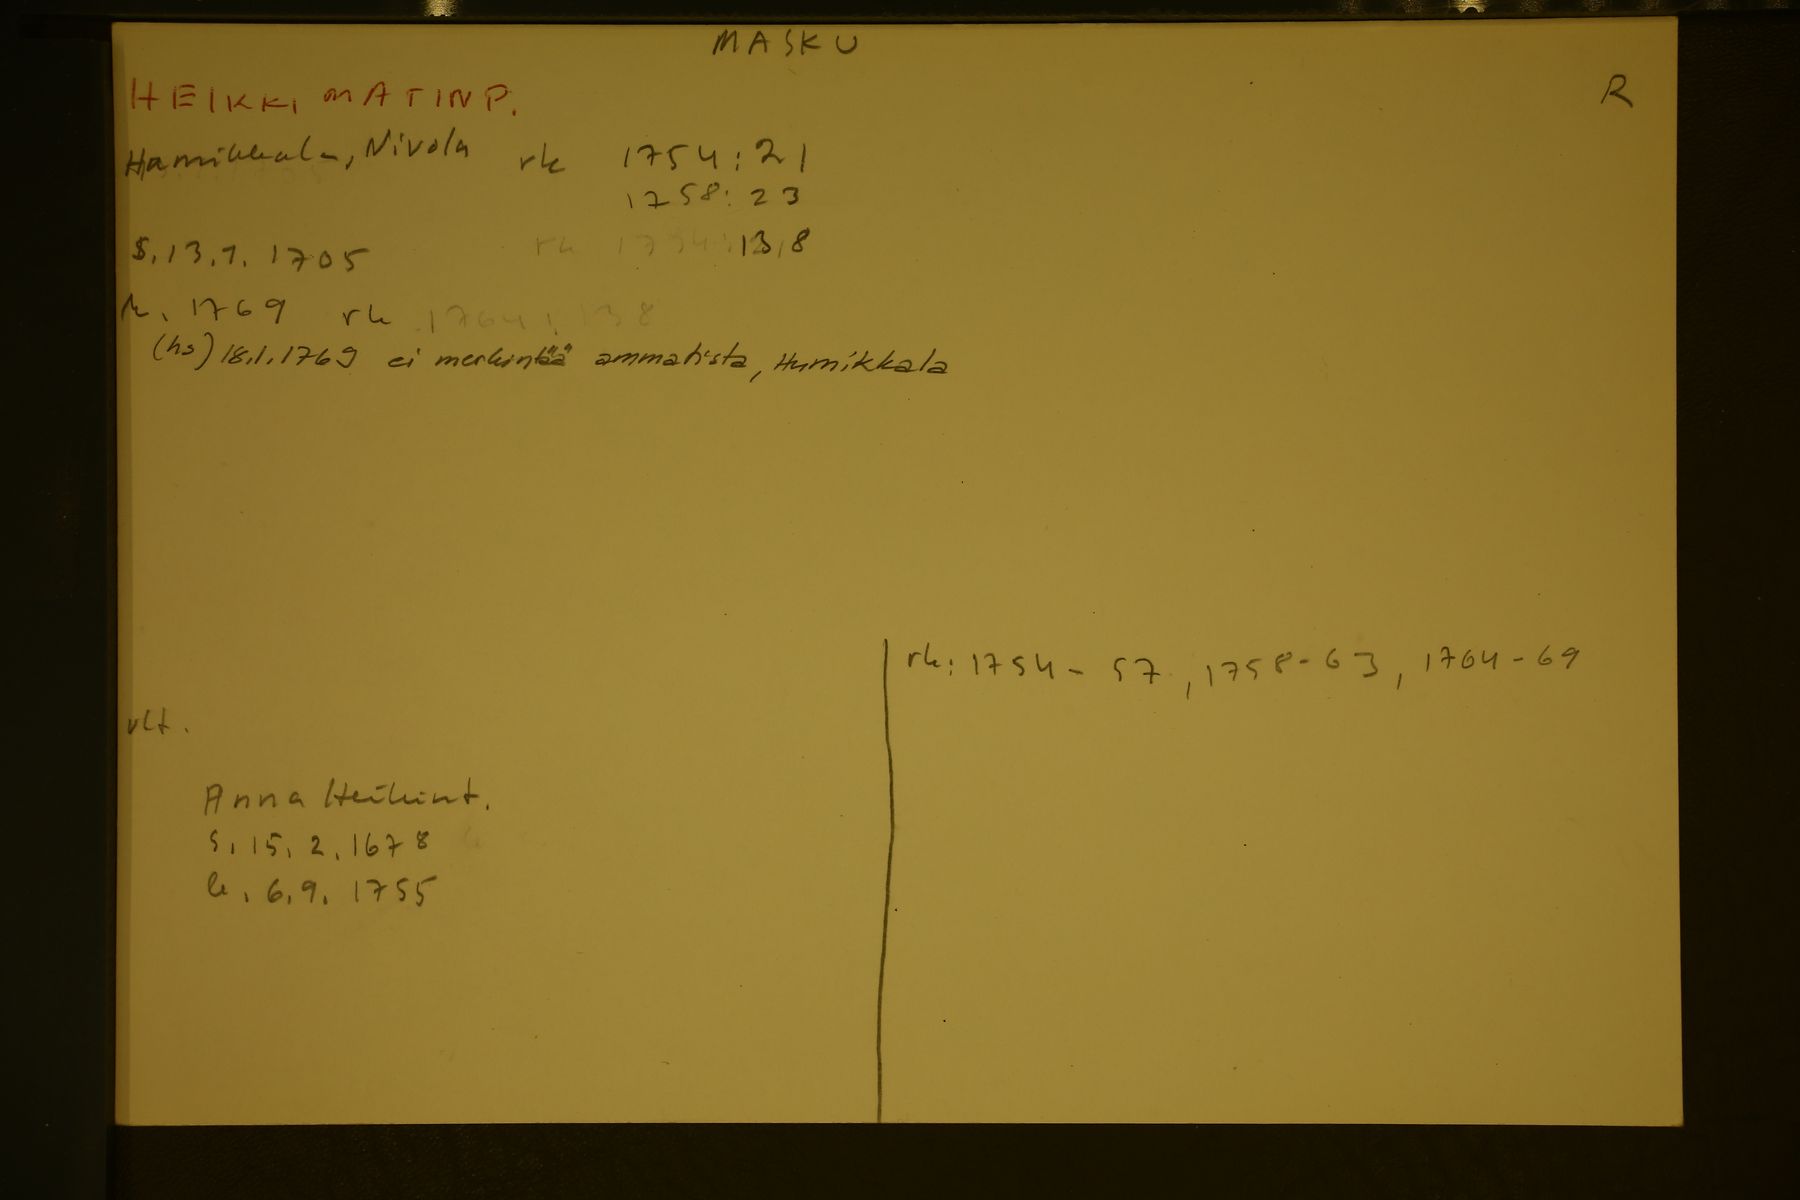 MASKU
R
HEIKKI MATINP.
Humikkala, Nivola rk 1754:21
1758:23
s. 13.1.1705 rk 1754:13,8
k. 1769 rk 1764:138
(hs) 18.1.1769 ei merkintää ammatista, Humikkala
rk: 1754-57, 1758-63, 1764-69
vlt.
Anna Heikint.
s. 15.2.1678
k. 6.9.1755